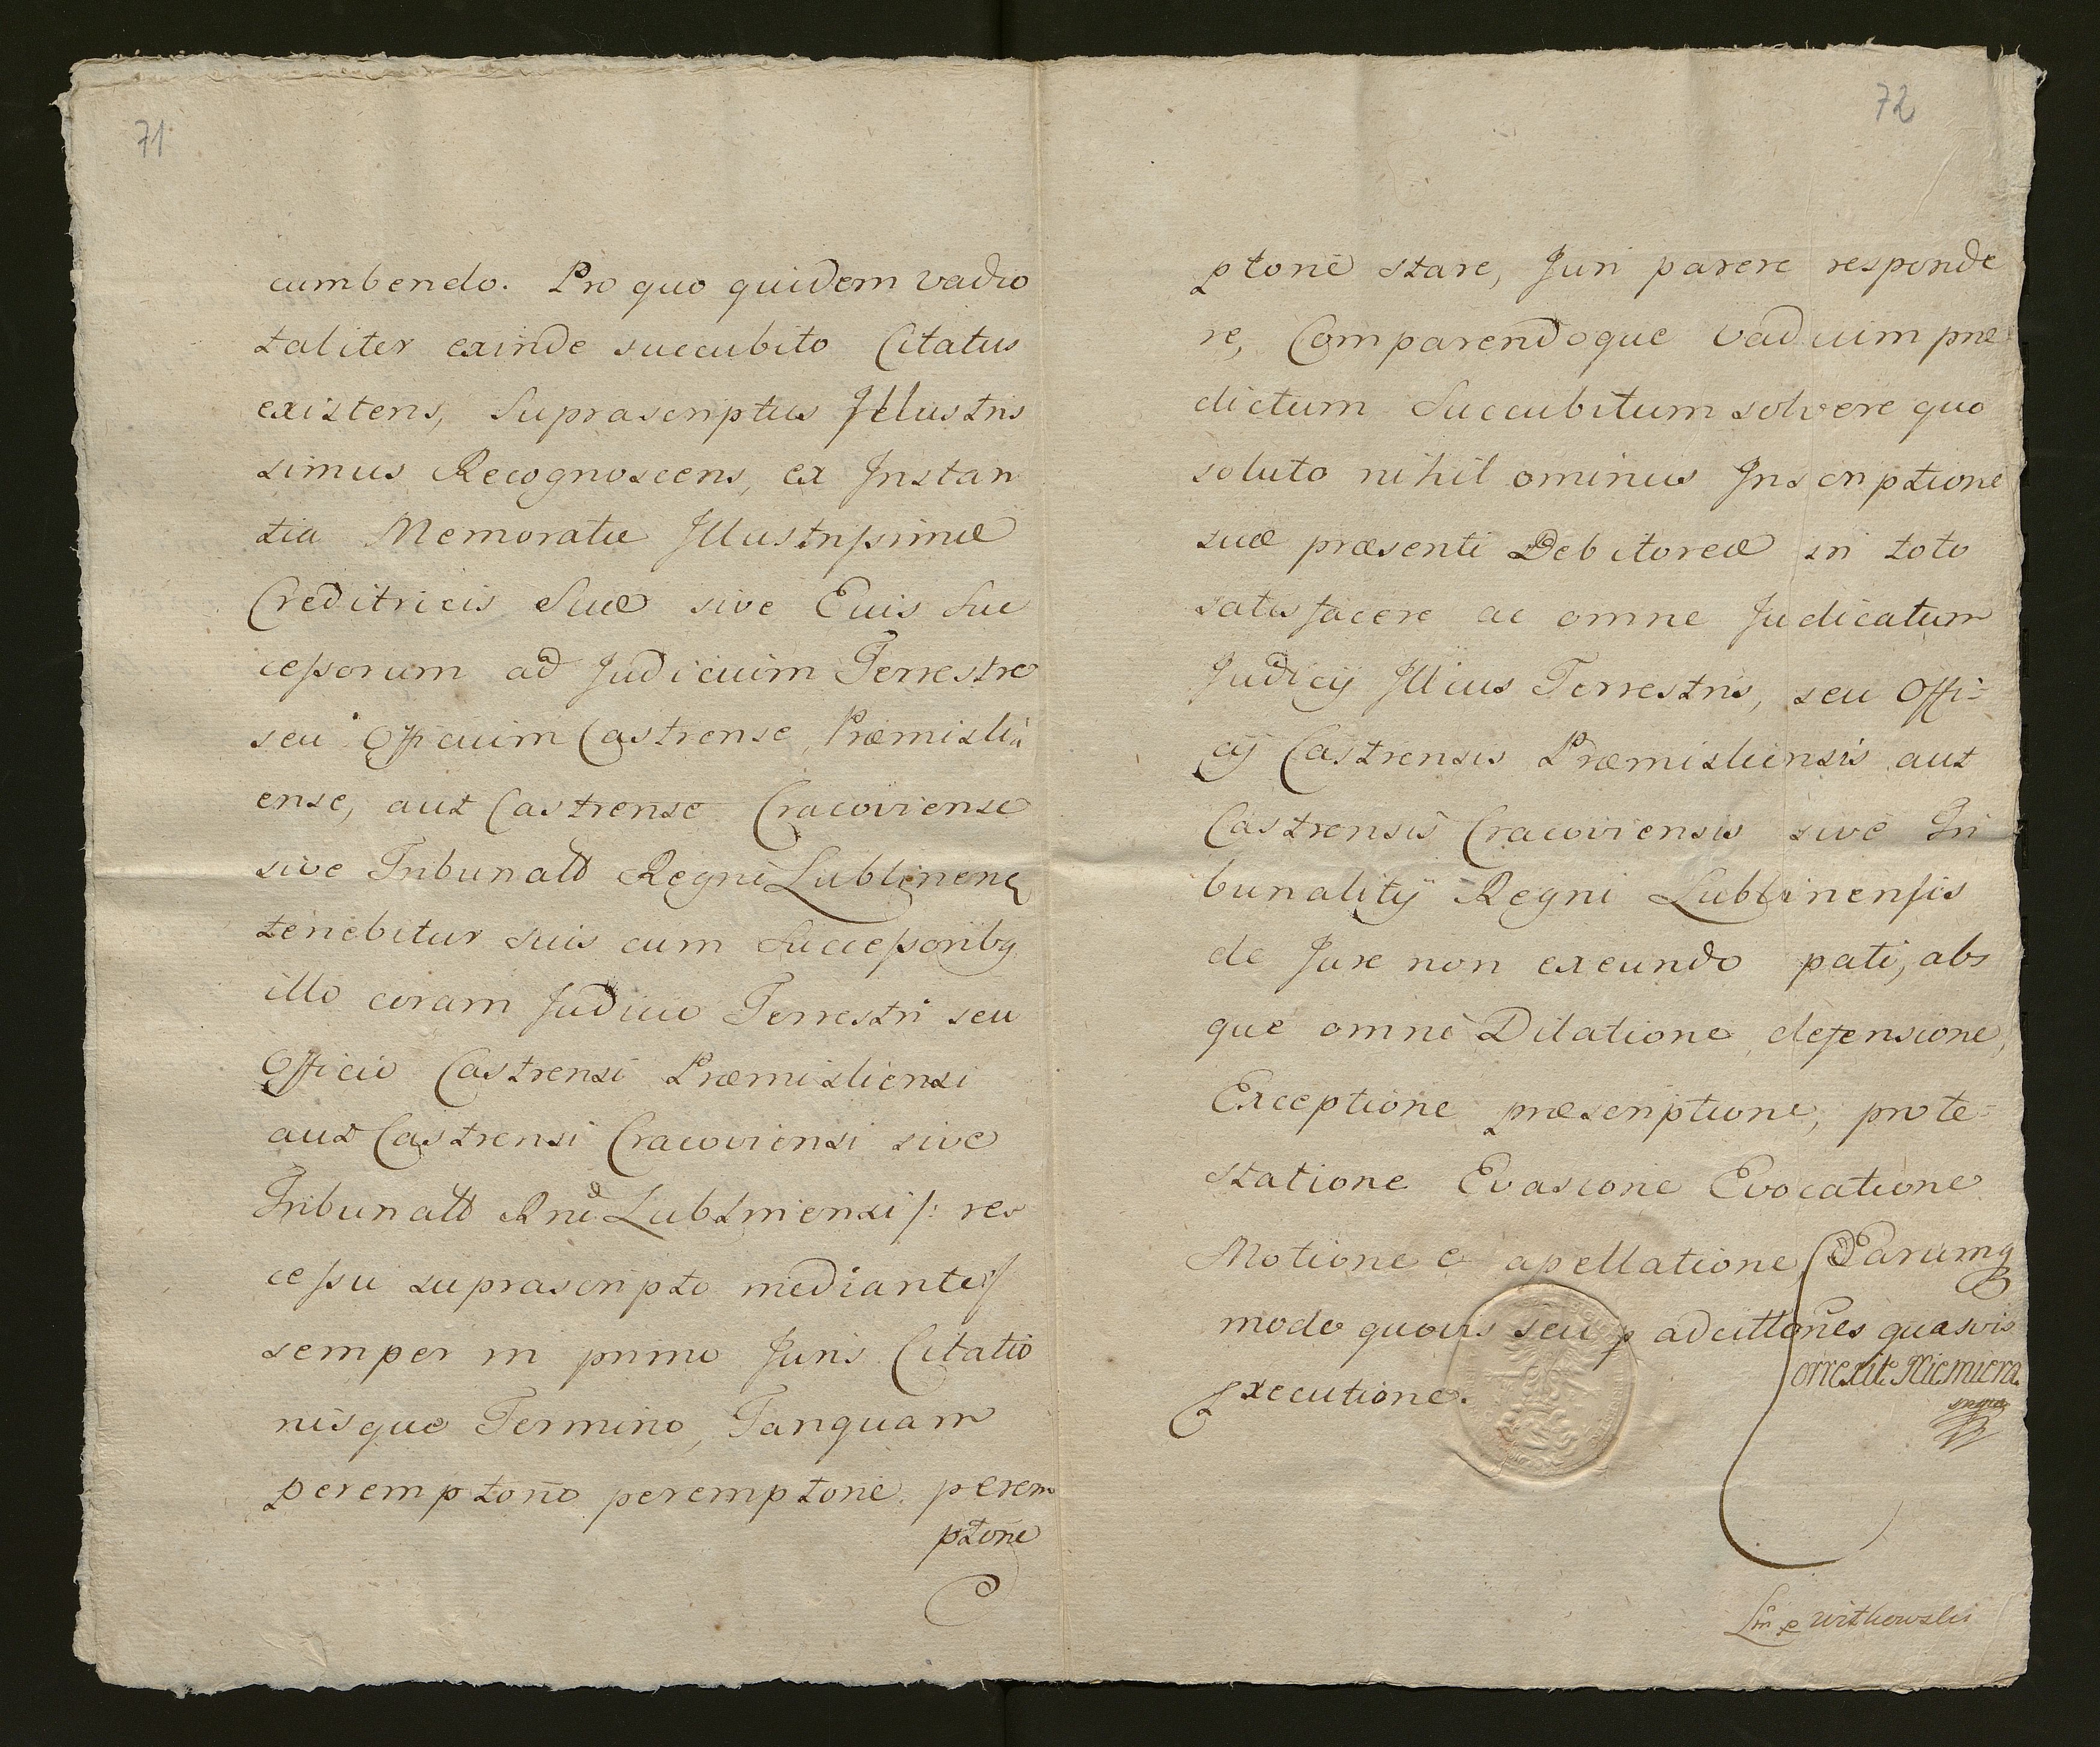 71
cumbendo. Pro quo quidem vadio
taliter exinde succubito Citatus
existens, Suprascriptus Illustris
simus Recognoscens, ex Instan
tia Memoratæ Illustrissimæ
Creditricis Suæ sive Euis Suc
cessorum ad Judicium Terrestre
seu Officium Castrense Præmisli
ense, aut Castrense Cracoviense
sive Tribunale Regni Lublinen
tenebitur suis cum Successoribq
illo coram Judicio Terrestri seu
Officio Castrensi Præmisliensi
aut Castrensi Cracoviensi sive
Tribunali Rni Lublinensi /: re
cessu suprascripto mediante :/
semper in primo Juris Citatio
nisque Termino, Tanquam
peremptorio peremptorie. perem
ptorie
72
ptorie stare, Juri parere responde
re, Comparendoque vadium præ
dictum Succubitum solvere quo
soluto nihil ominus Inscriptione
suæ præsenti Debitoreæ in toto
satisfacere ac omne Judicatum
Judicij Illius Terrestris, seu Offi=
cij Castrensis Præmisliensis aut
Castrensis Cracoviensis sive Tri
bunalitij Regni Lublinensis
de Jure non exeundo pati, abs
que omni Dilatione, defensione,
Exceptione præscriptione, prote=
statione Evasione Evocatione
Motione & apellatione Earumq
modo quovis seu p adcittones quasvis
executione.
Correxit Niemiera
mpp
Lm p Witkowski